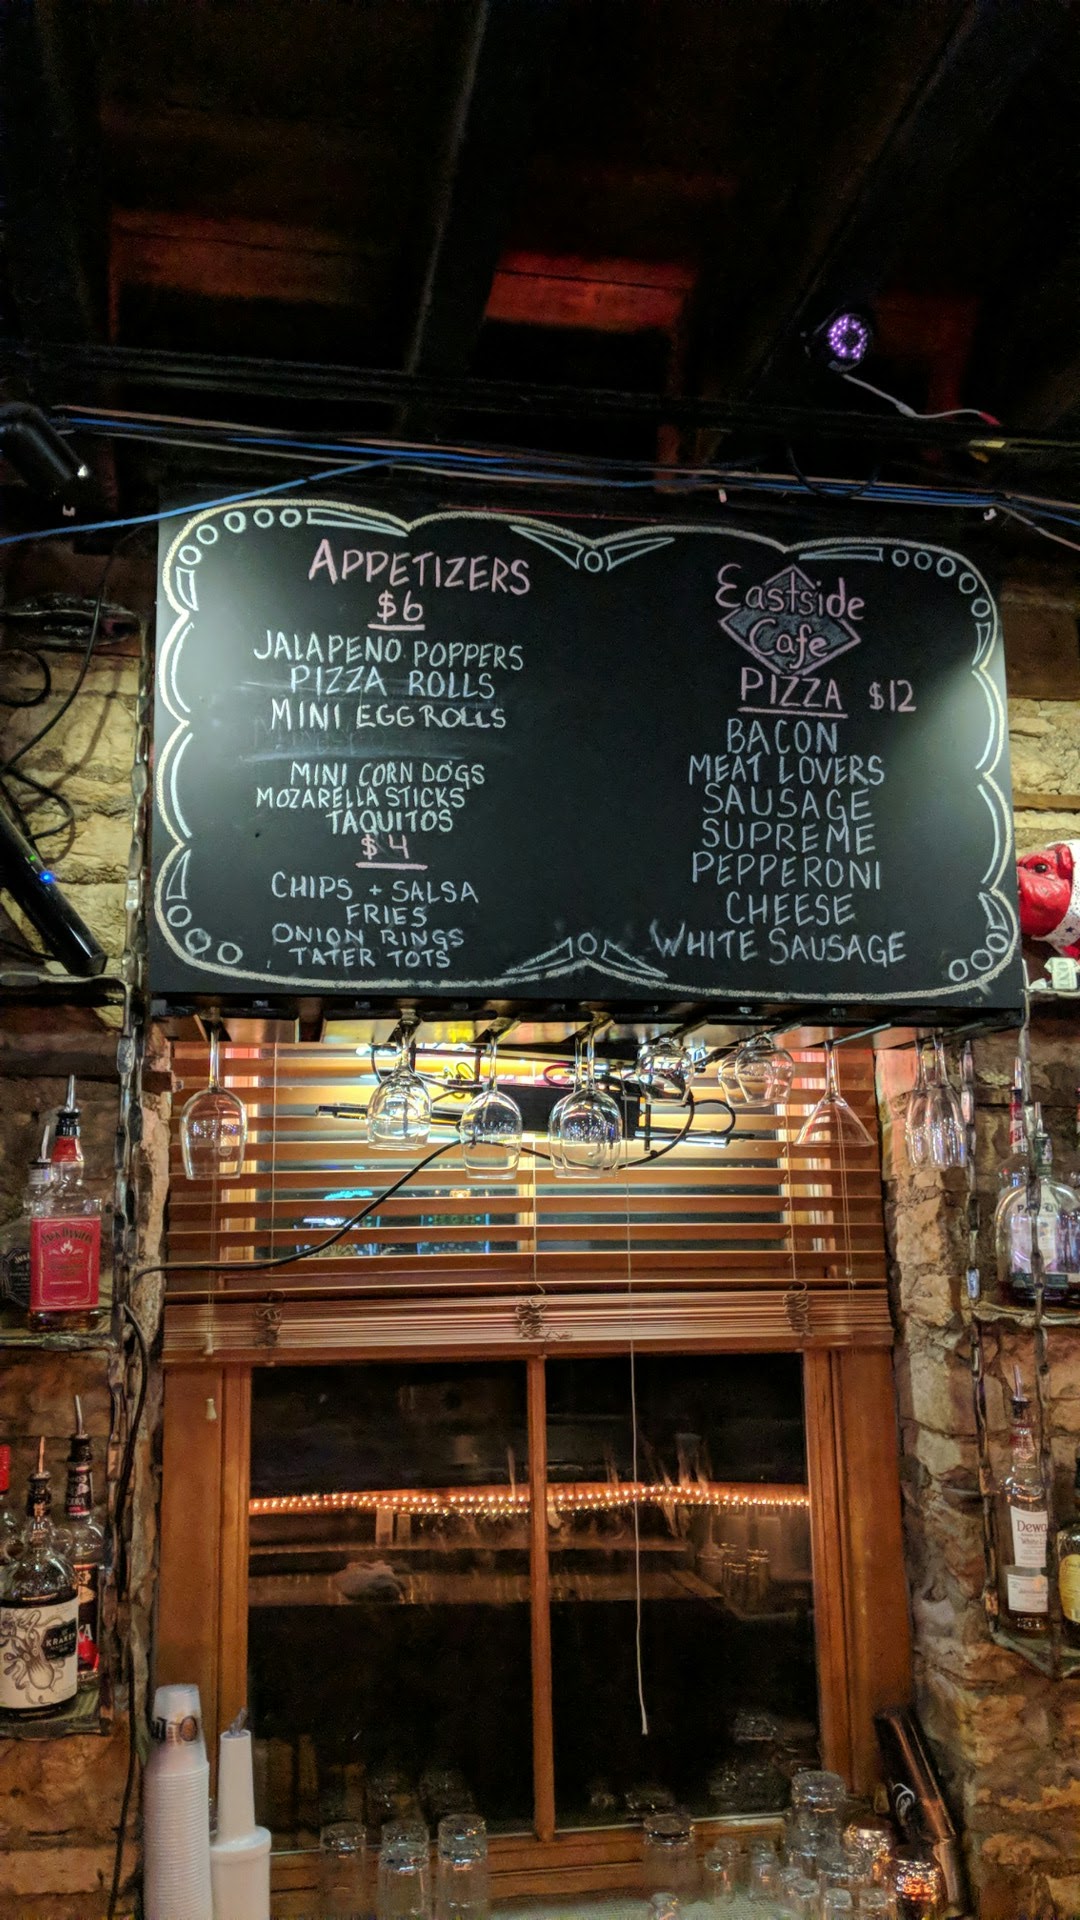 APPETIZERS
$6
JALAPENO POPPERS
PIZZA ROLLS
MINI EGG ROLLS
MINI CORN DOGS
MOZARELLA STICKS
TAQUITOS
$4
CHIPS + SALSA
FRIES
ONION RINGS
TATER TOTS
Eastside
Cafe
PIZZA $12
BACON
MEAT LOVERS
SAUSAGE
SUPREME
PEPPERONI
CHEESE
WHITE SAUSAGE
JACK DANIEL'S
KRAKEN
Dewa